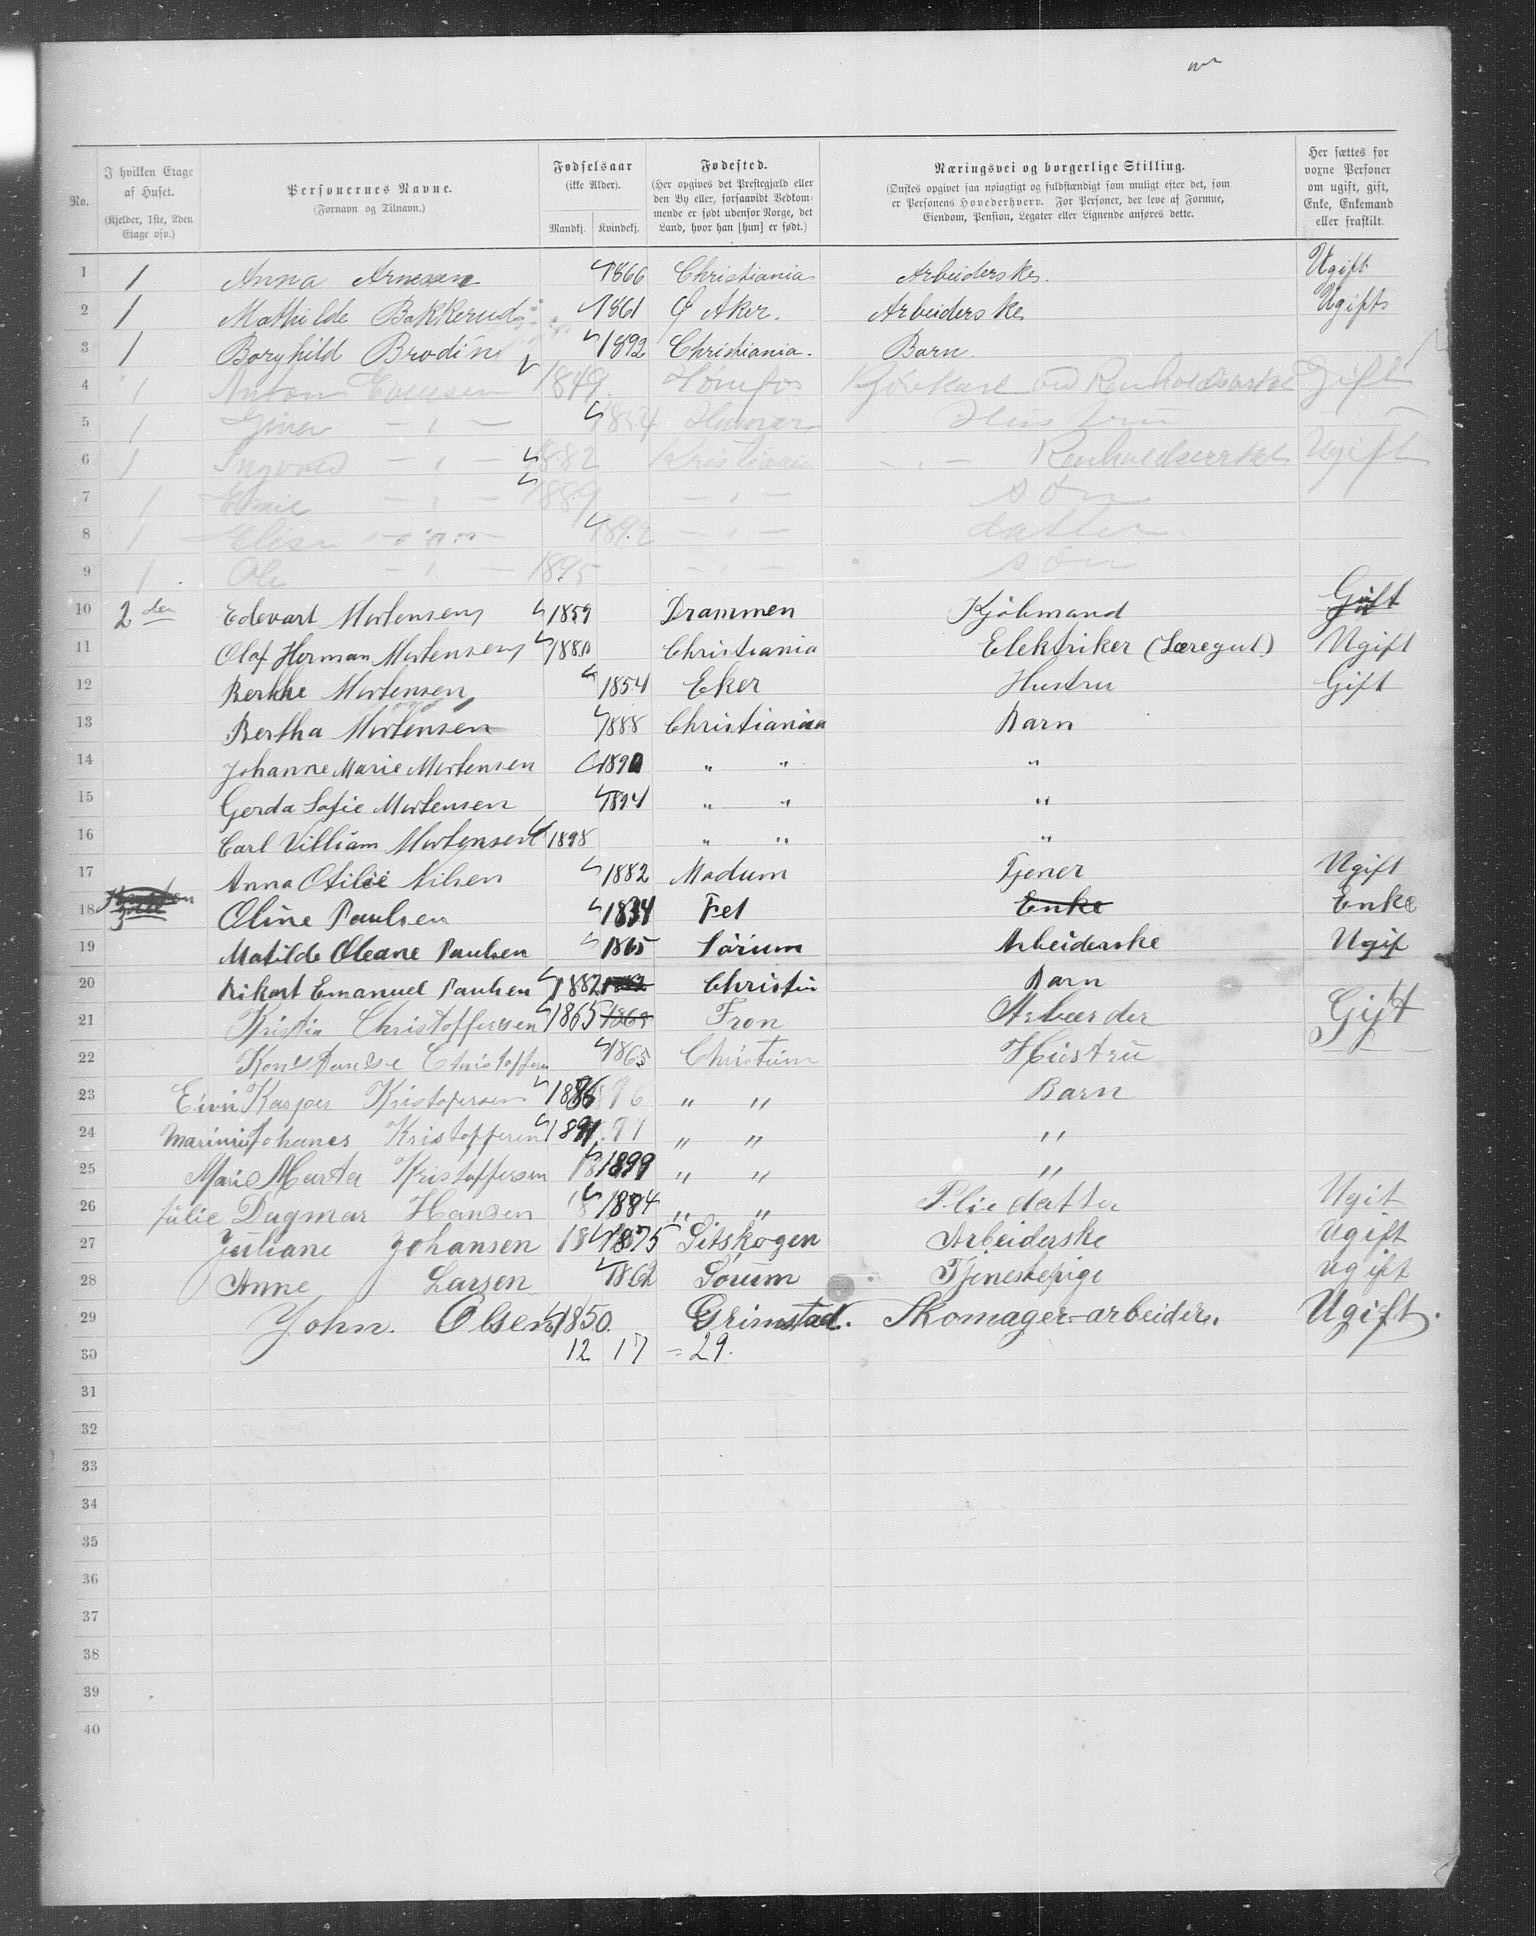 No.
I hvilken Etage af Huset. (Kjelder, 1ste, 2den Etage osv.)
Personernes Navne. (Fornavn og Tilnavn.)
Fødselsaar (ikke Alder). Mandkj. Kvindekj.
Fødested. (Her opgives det Prestegjæld eller den By eller, forsaavidt Vedkommende er født udenfor Norge, det Land, hvor han [hun] er født.)
Næringsvei og borgerlige Stilling. (Ønskes opgivet saa nøiagtigt og fuldstændigt som muligt efter det, som er Personens Hovederhverv. For Personer, der leve af Formue, Eiendom, Pension, Legater eller Lignende anføres dette.)
Her sættes for voxne Personer om ugift, gift, Enke, Enkemand eller fraskilt.
1 1 Anna Arnesen 1866 Christiania Arbeiderske. Ugift
2 1 Mathilde Bakkerud 1861 Ø Aker. Arbeiderske Ugift
3 1 Borghild Brodin 1892 Christiania. Barn.
4 1 Anton Evensen 1849 Hønefos Kjørekarl ved Renholdsverket Gift
5 1 Gina — " — 1854 Hustru
6 1 Ingvald — " — 1882 Kristiania — " — Renholdsverket Ugift
7 1 — " — 1889 — " — søn
8 1 Elise — " — 1892 — " — datter
9 1 Ole — " — 1895 — " — søn
10 2den Edevart Mortensen 1859 Drammen Kjøbmand Gift
11 Olaf Herman Mortensen 1880 Christiania Elektriker (Læregut) Ugift
12 Berthe Mortensen 1854 Eker Hustru Gift
13 Bertha Mortensen 1888 Christiania Barn
14 Johanne Marie Mortensen 1890 " " "
15 Gerda Sofie Mortensen 1894 " " "
16 Carl Villiam Mortensen 1898 " " "
17 Anna Otilie Nilsen 1882 Modum Tjener Ugift
18 Oline Paulsen 1834 Fet Enke Enke
19 Matilde Oleane Paulsen 1865 Sörium Arbeiderske Ugif
20 Rikart Emanuel Paulsen 1882 Christin Barn
21 Kristin Christoffersen 1865 1865 Fron Arbeider Gift
22 Konstanse Christoffern 1865 Christium Hüstrü
23 Eivin Kasper Kristofersen 1886 " " Barn
24 Marinius Johanes Kristofferen 1891 " " "
25 Marie Marta Kristoffersen 1899 " " "
26 Julie Dagmar Hansen 1884 " " Pliedatter Ugit
27 Juliane Johansen 1875 Sitskogen Arbeiderske Ugift
28 Anne Larsen 1862 Sörum Tjenestepige ugift
29 John. Olsen 1850. Grimstad. Skomager-arbeider. Ugift.
30 12 17 = 29.
31
32
33
34
35
36
37
38
39
40